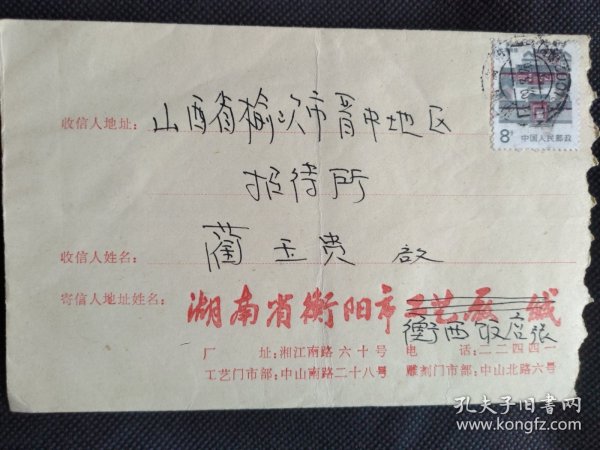 8分 中国人民邮政
收信人地址: 山西省榆次市晋中地区
招待所
收信人姓名: 蔺玉贵 启
寄信人地址姓名: 湖南省衡阳市工艺厂 缄
衡西饭店张
厂 址:湘江南路六十号 电 话:二二四四一
工艺门市部:中山南路二十八号 雕刻门市部:中山北路六号
孔夫子旧书网
www.kongfz.com